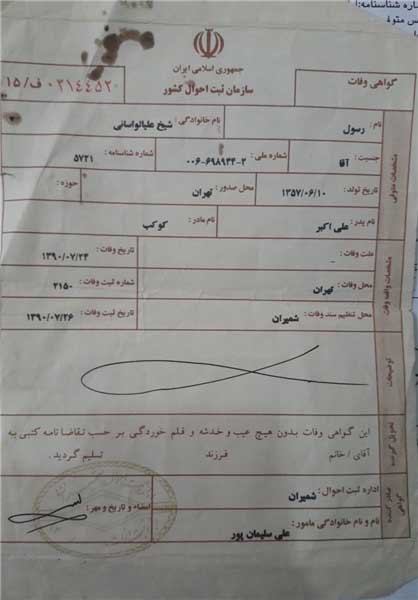 جمهوری اسلامی ایران
سازمان ثبت احوال کشور
گواهی وفات
۲۱۴۴۵۲ ف/۱۵
نام: رسول نام خانوادگی: شیخ علیالواسانی
جنسیت: آقا شماره ملی: ۰۰۶-۶۹۸۹۴۴-۲ شماره شناسنامه: ۵۷۲۱
تاریخ تولد: ۱۳۵۷/۰۶/۱۰ محل صدور: تهران حوزه:
نام پدر: علی اکبر نام مادر: کوکب
مشخصات متوفی
علت وفات: - تاریخ وفات: ۱۳۹۰/۰۷/۲۴
محل وفات: تهران شماره ثبت وفات: ۲۱۵۰
محل تنظیم سند وفات: شمیران تاریخ ثبت وفات: ۱۳۹۰/۰۷/۲۶
مشخصات واقعه وفات
توضیحات
این گواهی وفات بدون هیچ عیب و خدشه و قلم خوردگی بر حسب تقاضا نامه کتبی به
آقای/خانم فرزند تسلیم گردید.
تحویل گیرنده
اداره ثبت احوال: شمیران
نام و نام خانوادگی مامور: علی سلیمان پور
امضاء و تاریخ و مهر:
صادر کننده گواهی